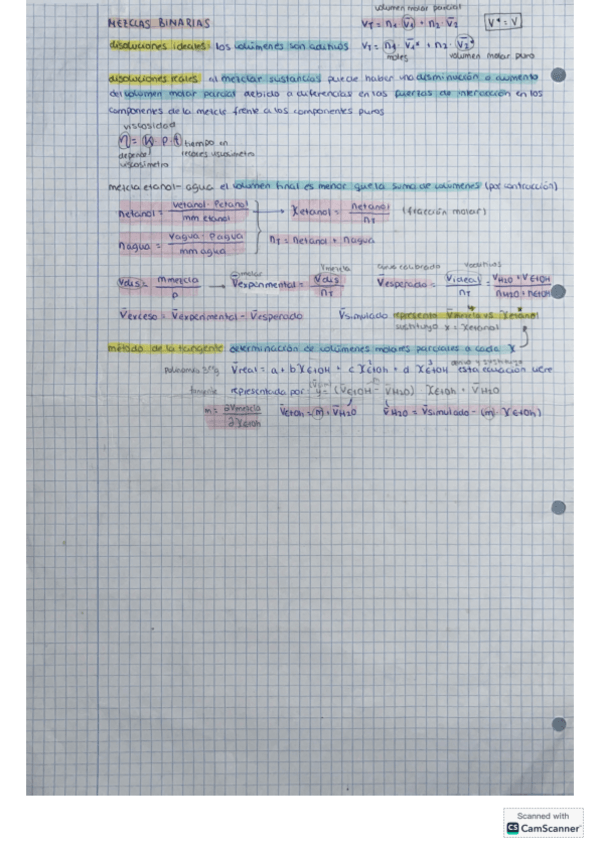 volumen molar parcial
MEZCLAS BINARIAS VT = n1 · V̄1 + n2 · V̄2 V* = V
disoluciones ideales: los volúmenes son aditivos VT = n1 · V̄1* + n2 · V̄2*
moles volumen molar puro
disoluciones reales al mezclar sustancias puede haber una disminución o aumento
del volumen molar parcial debido a diferencias en las fuerzas de interacción en los
componentes de la mezcla frente a los componentes puros
viscosidad
η = K · ρ · t tiempo en
depende viscosímetro
viscosímetro
mezcla etanol-agua el volumen final es menor que la suma de volúmenes (por contracción)
netanol = vetanol · ρetanol / mm etanol → Xetanol = netanol / nT (fracción molar)
nagua = vagua · ρagua / mm agua nT = netanol + nagua
Vdis = mmezcla / ρ → V̄experimental = Vdis / nT V̄esperado = Videal / nT = VH2O + VEtOH / nH2O + nEtOH
V̄exceso = V̄experimental - V̄esperado V̄simulado representa V̄mezcla vs Xetanol
sustituyo x = Xetanol
método de la tangente determinación de volúmenes molares parciales a cada X
V̄real = a + b XEtOH + c X²EtOH + d X³EtOH esta ecuación viene
representada por y = (V̄EtOH - V̄H2O) XEtOH + V̄H2O
m = ∂V̄mezcla / ∂XEtOH V̄EtOH = m + V̄H2O V̄H2O = V̄simulado - (m · XEtOH)
Scanned with
CS CamScanner